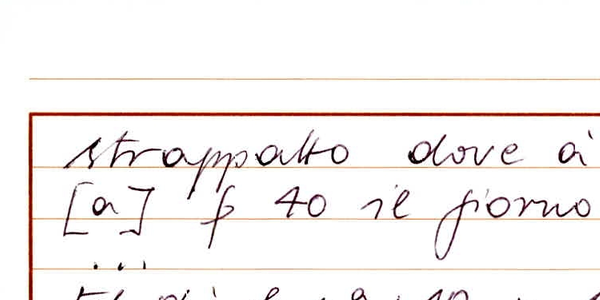 strappatto dove à
[a] f 40 il giorno
...